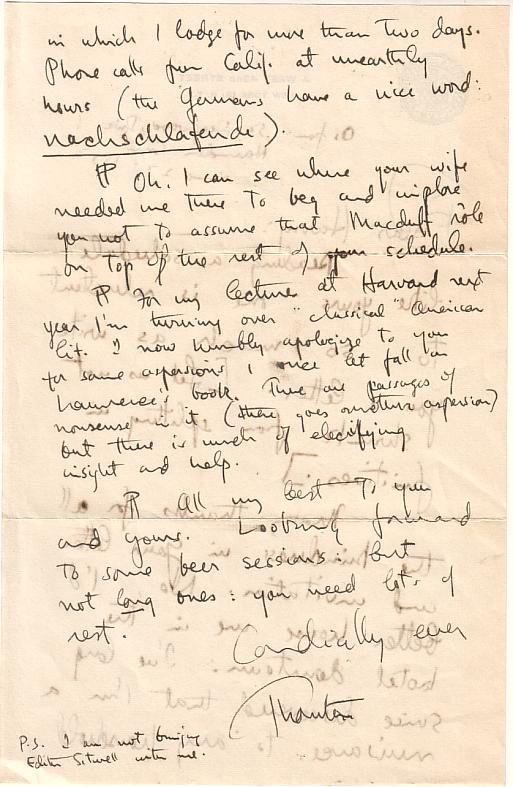 in which I lodge for more than two days.
Phone calls from Calif. at unearthly
hours (the Germans have a nice word:
nachschlafende).
¶ Oh, I can see where your wife
needed me there to beg and implore
you not to assume that Macduff rôle
on top of the rest of your schedule.
¶ For my lectures at Harvard next
year I'm turning over "classical" American
Lit. I now humbly apologize to you
for some aspersions I once let fall on
Lawrence's book. There are passages of
nonsense in it (there goes another aspersion)
but there is much of electrifying
insight and help.
¶ All my best to you
and yours. Looking forward
to some beer sessions: but
not long ones: you need lots of
rest.
Cordially ever
Thornton
P.S. I am not bringing
Edith Sitwell with me.